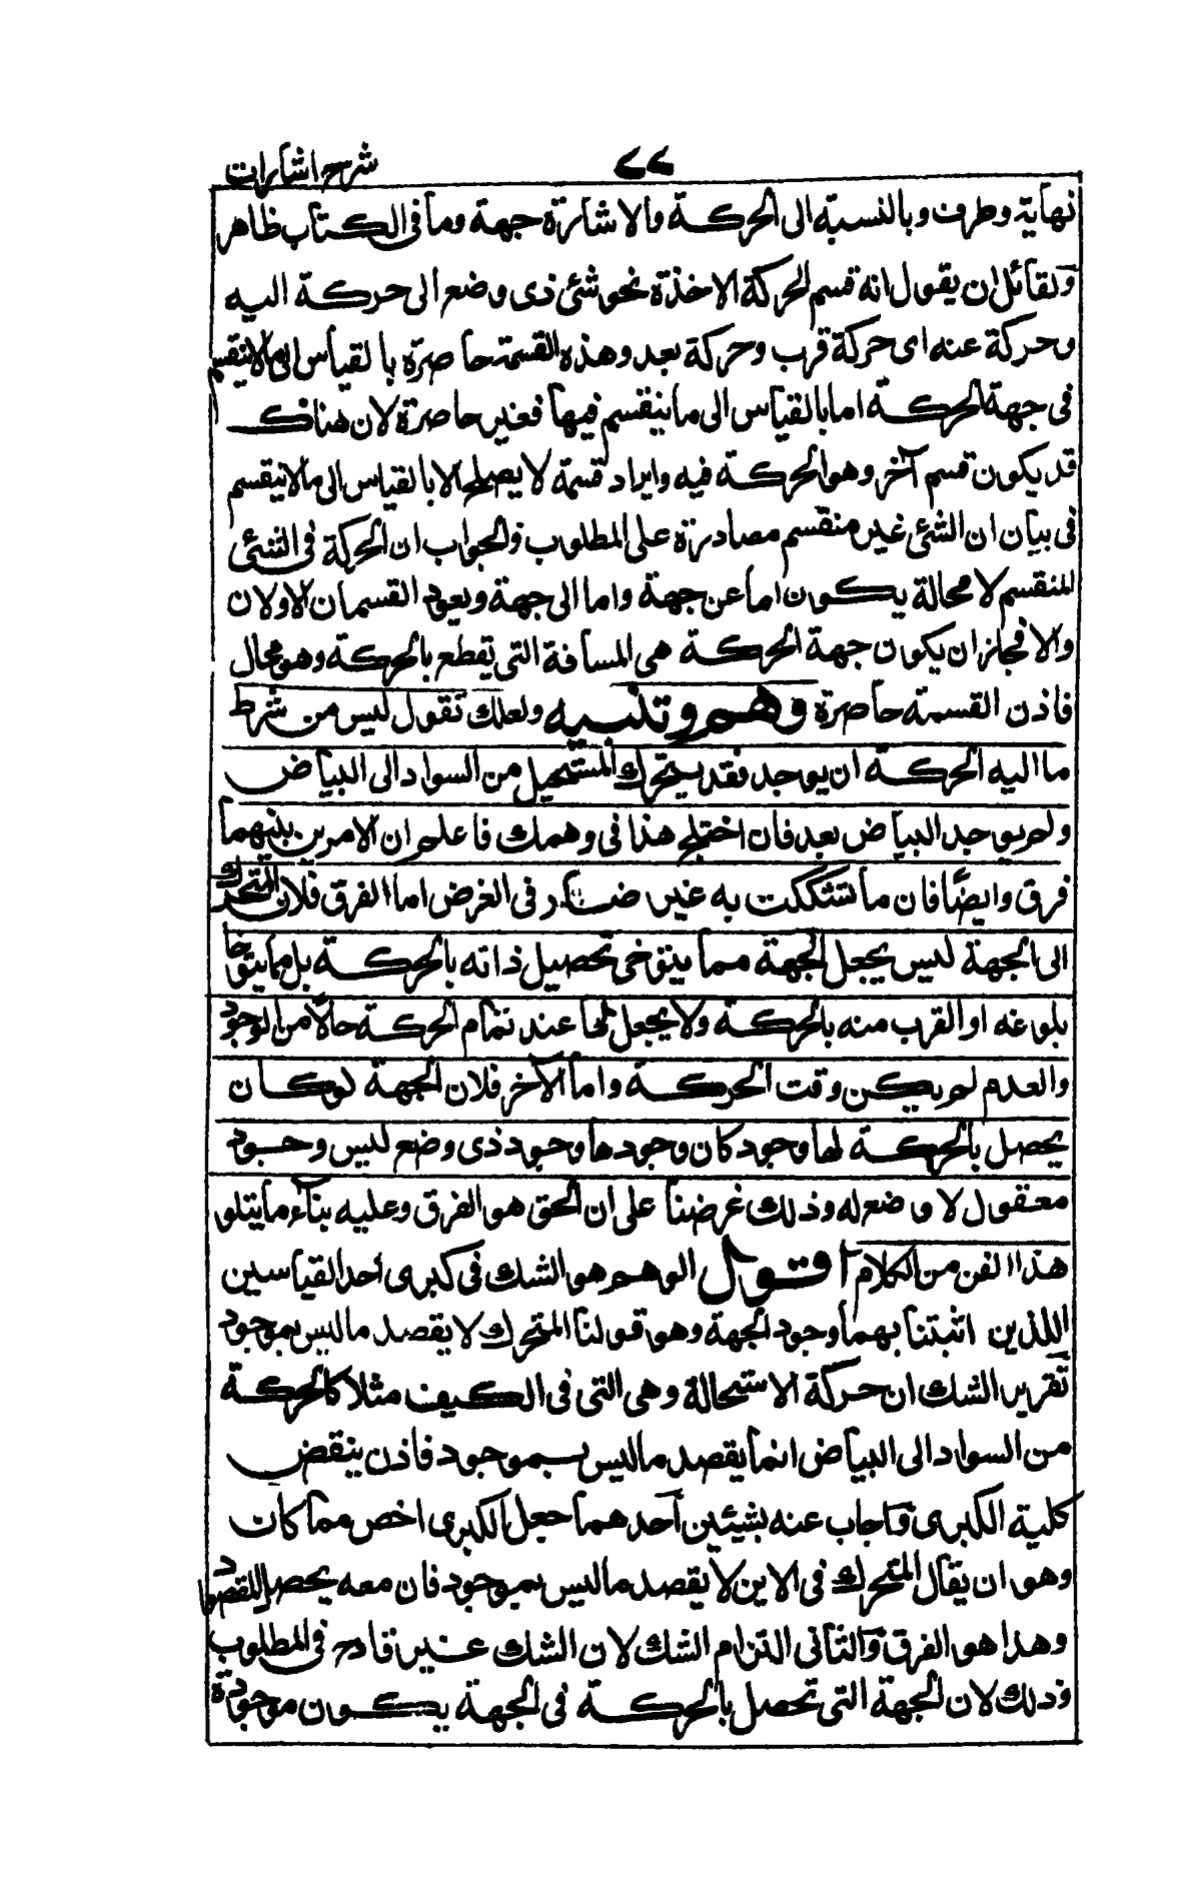 شرح اشارات
٧٧
نهاية وطرف وبالنسبة الى الحركة والاشارة جهة وما فى الكتاب ظاهر
ولقائل ان يقول انه قسم الحركة الاخذة نحو شئ ذى وضع الى حركة اليه
وحركة عنه اى حركة قرب وحركة بعد وهذه القسمة حاصرة بالقياس الى مالا ينقسم
فى جهة الحركة اما بالقياس الى ما ينقسم فيها فغير حاصرة لان هناك
قد يكون قسم آخر وهو الحركة فيه وايراد قسمة لا يصلح الا بالقياس الى مالا ينقسم
فى بيان ان الشئ غير منقسم مصادرة على المطلوب والجواب ان الحركة فى الشئ
المنقسم لا محالة يكون اما عن جهة واما الى جهة ويعود القسمان الاولان
والا فجاز ان يكون جهة الحركة هى المسافة التى يقطع بالحركة وهو محال
فاذن القسمة حاصرة وهم وتنبيه ولعلك تقول ليس من شرط
ما اليه الحركة ان يوجد فقد يتحرك المستحيل من السواد الى البياض
ولم يوجد البياض بعد فان اختلج هذا فى وهمك فاعلم ان الامرين بينهما
فرق وايضًا فان ما تشككت به غير ضار فى الغرض اما الفرق فلان المتحرك
الى الجهة ليس يجعل الجهة مما يتوخى تحصيل ذاته بالحركة بل مما يتوخا
بلوغه او القرب منه بالحركة ولا يجعل لها عند تمام الحركة حالاً من الوجود
والعدم لم يكن وقت الحركة واما الآخر فلان الجهة لو كان
يحصل بالحركة لها وجود كان وجودها وجود ذى وضع ليس وجود
معقول لا وضع له وذلك غرضنا على ان الحق هو الفرق وعليه بناء ما يتلو
هذا الفن من الكلام اقول الوهم هو الشك فى كبرى احد القياسين
اللذين اثبتنا بهما وجود الجهة وهو قولنا المتحرك لا يقصد ما ليس بموجود
تقرير الشك ان حركة الاستحالة وهى التى فى الكيف مثلا كالحركة
من السواد الى البياض انما يقصد ما ليس بموجود فاذن ينقض
كلية الكبرى واجاب عنه بشيئين احدهما جعل الكبرى اخص مما كان
وهو ان يقال المتحرك فى الاين لا يقصد ما ليس بموجود فان معه يحصل المقصود
وهذا هو الفرق والثانى التزام الشك لان الشك غير قادح فى المطلوب
وذلك لان الجهة التى تحصل بالحركة فى الجهة يكون موجودة